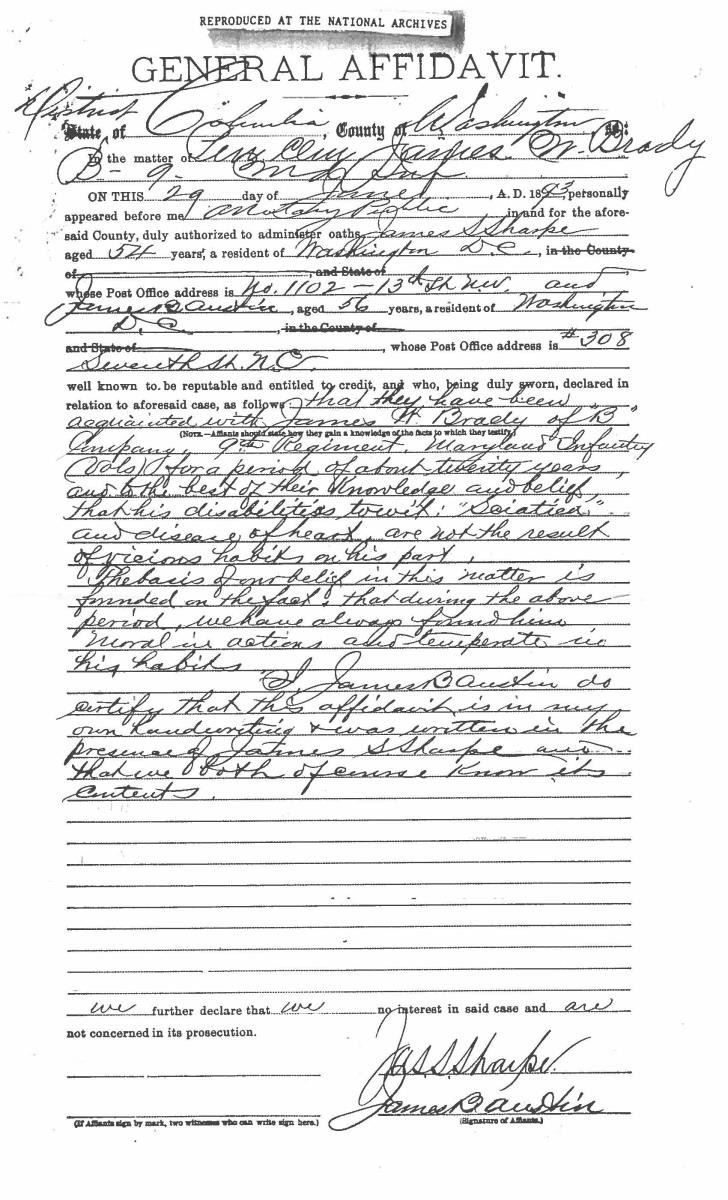 REPRODUCED AT THE NATIONAL ARCHIVES
GENERAL AFFIDAVIT.
District
State of Columbia, County of Washington, SS:
In the matter of James W. Brady
B - 9 Md Inf
ON THIS 29 day of June, A. D. 1893, personally
appeared before me a Notary Public in and for the afore-
said County, duly authorized to administer oaths, James S Sharpe
aged 54 years, a resident of Washington D.C., in the County
of , and State of
whose Post Office address is No. 1102 - 13th St NW. and
James B Austin, aged 56 years, a resident of Washington
D.C. , in the County of
and State of , whose Post Office address is #308
Seventh St. N.E.
well known to be reputable and entitled to credit, and who, being duly sworn, declared in
relation to aforesaid case, as follows: that they have been
acquainted with James W. Brady of "B"
(NOTE.—Affiants should state how they gain a knowledge of the facts to which they testify.)
Company, 9th Regiment, Maryland Infantry
(Vols) for a period of about twenty years,
and to the best of their knowledge and belief,
that his disabilities to wit: "Sciatica,"
and disease of heart, are not the result
of vicious habits on his part.
The basis of our belief in this matter is
founded on the fact, that during the above
period, we have always found him
moral in actions and temperate in
his habits
I, James B Austin do
certify that this affidavit is in my
own handwriting & was written in the
presence of James S Sharpe and
that we both of course know its
contents.
we further declare that we no interest in said case and are
not concerned in its prosecution.
Jas. S. Sharpe.
James B Austin
(If Affiants sign by mark, two witnesses who can write sign here.) (Signature of Affiants.)